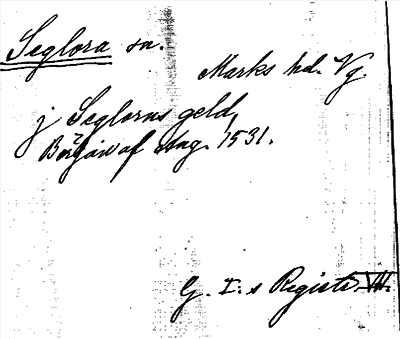 Seglora sn.
Marks hd. Vg
j Seglorus geld,
af Aug. 1531.
G. I:s Registr. VII.